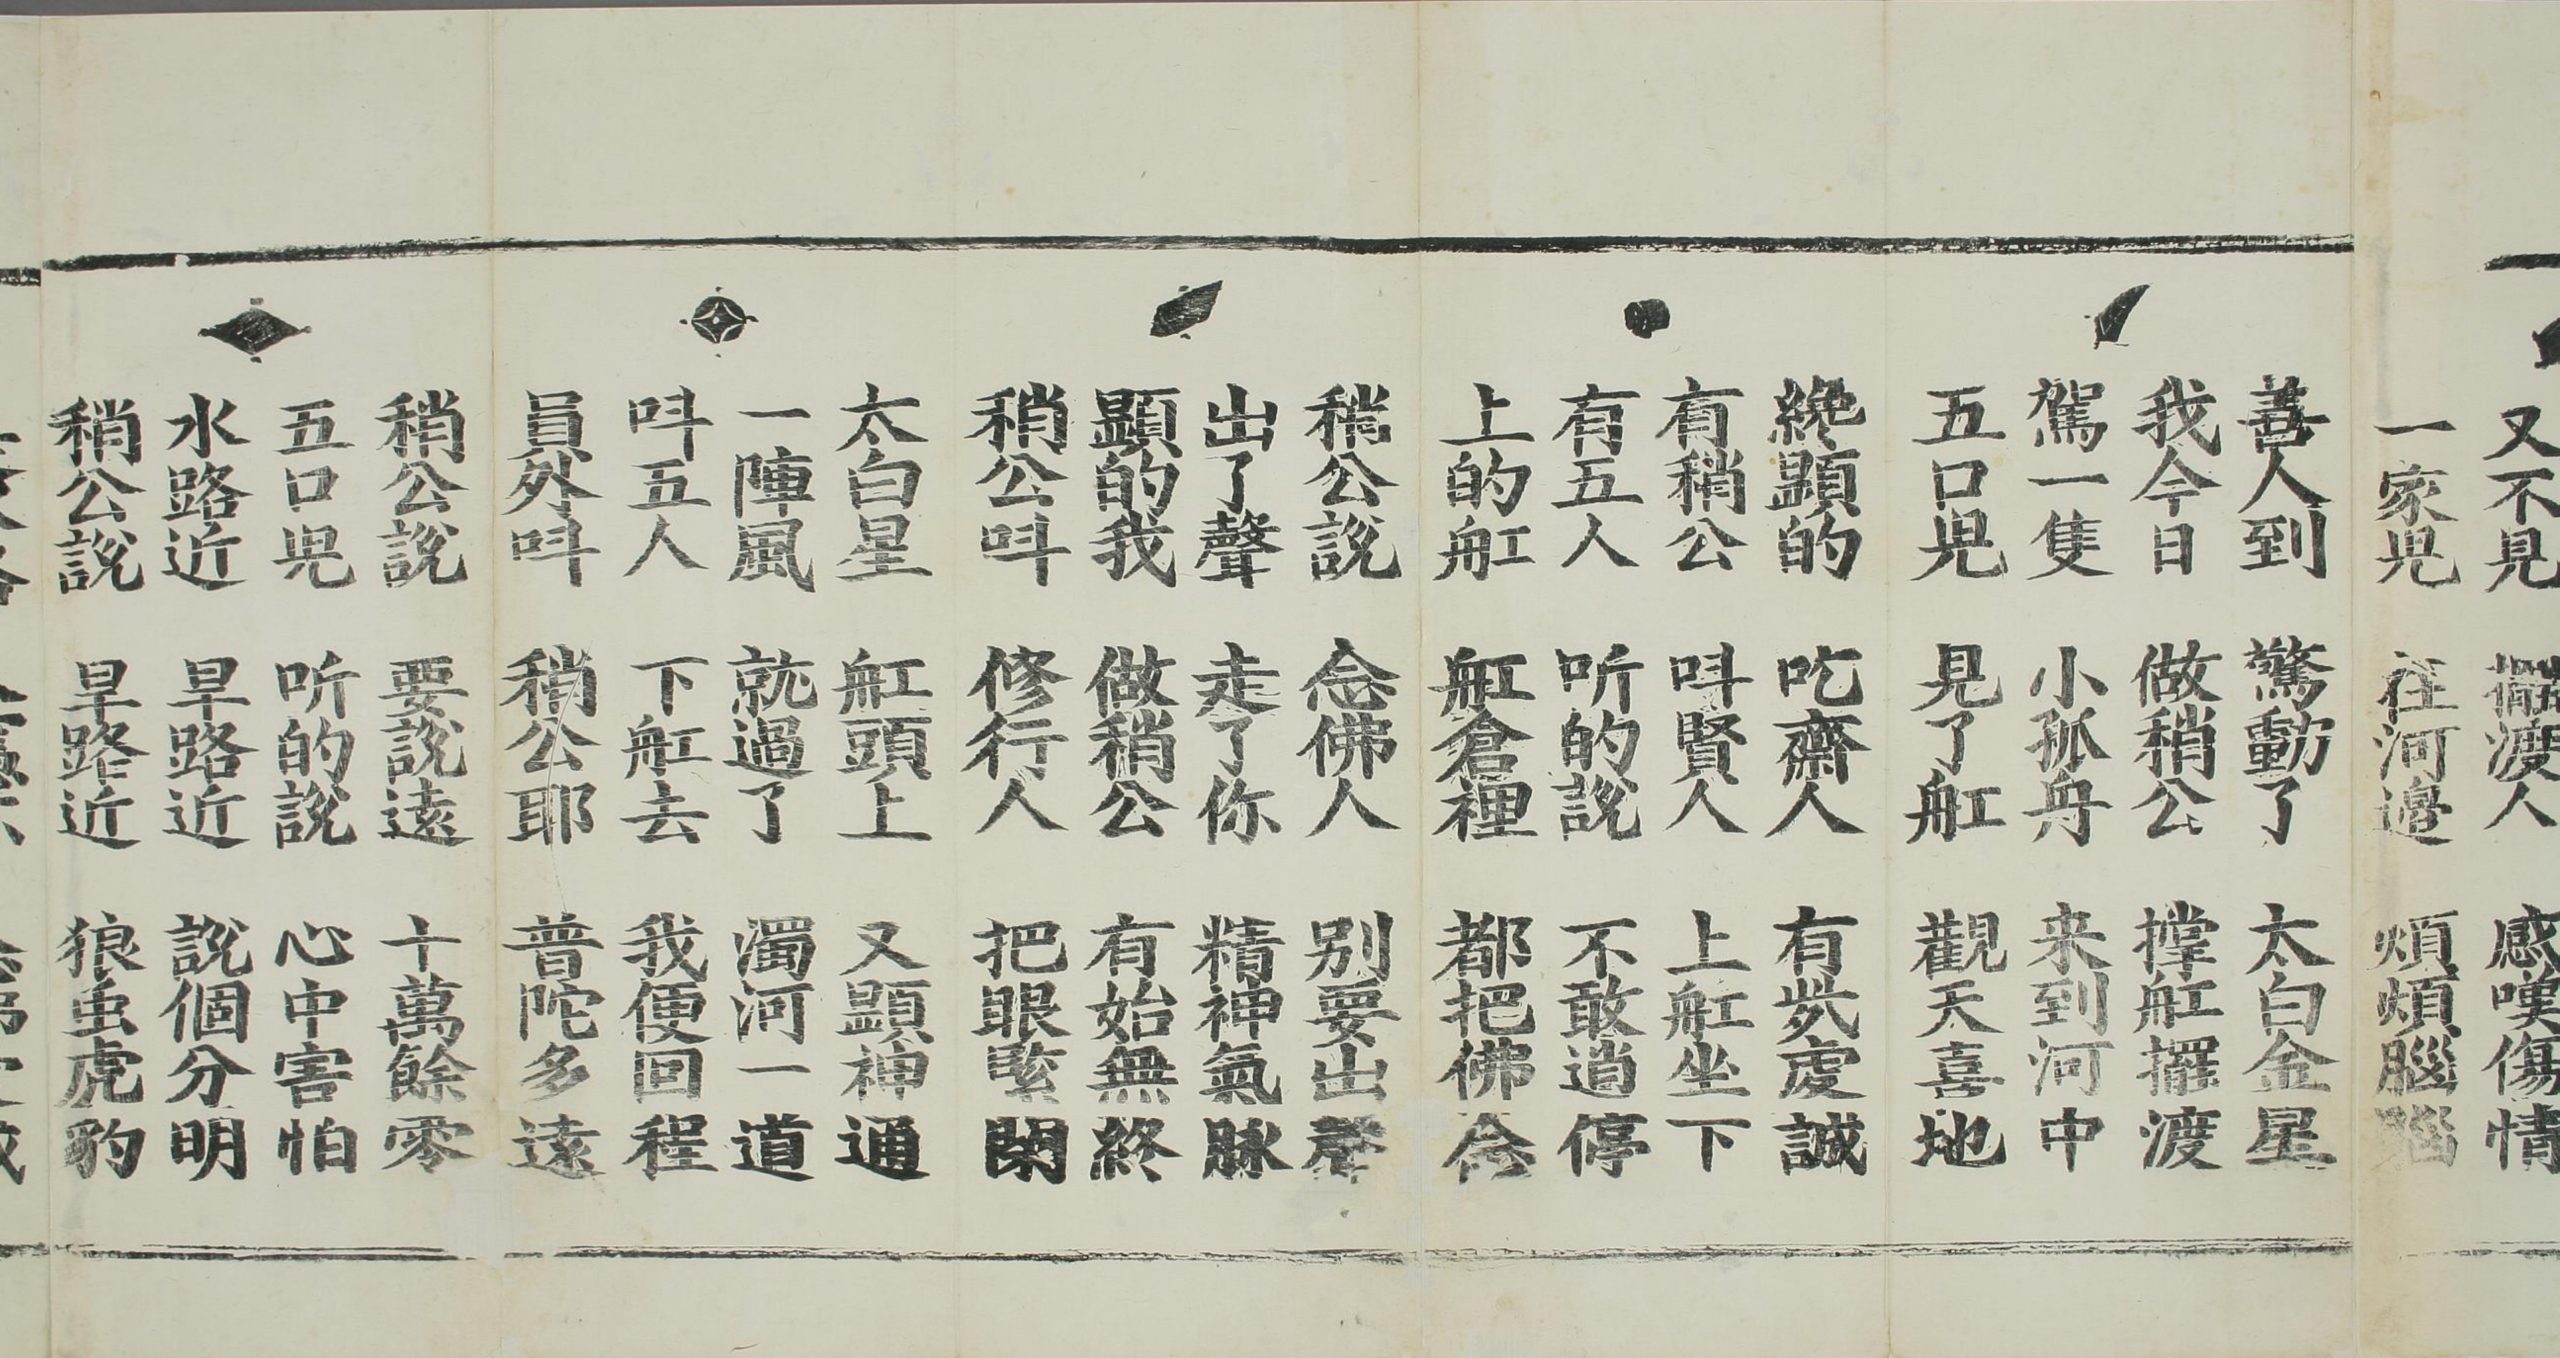 又不見 擺渡人 感嘆傷情
一家児 往河邉 煩煩腦腦
善人到 驚動了 太白金星
我今日 做稍公 撑舡擺渡
駕一隻 小孤舟 来到河中
五口児 見了舡 觀天喜地
纔顕的 吃齋人 有些處誠
有稍公 呌賢人 上舡坐下
有五人 听的說 不敢逍停
上的舡 舡倉裡 都把佛念
稍公說 念佛人 别要出聲
出了聲 走了你 精神氣脉
顕的我 做稍公 有始無終
稍公呌 修行人 把眼緊閉
太白星 舡頭上 又顕神通
一陣風 就過了 濁河一道
呌五人 下舡去 我便回程
員外呌 稍公耶 普陀多遠
稍公說 要說遠 十萬餘零
五口児 听的說 心中害怕
水路近 旱路近 說個分明
稍公說 旱路近 狼虫虎豹